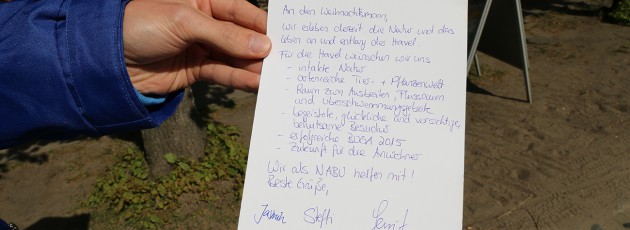 An den Weihnachtsmann,
wir erleben derzeit die Natur und das
Leben an und entlang der Havel
Für die Havel wünschen wir uns
- intakte Natur
- artenreiche Tier- + Pflanzenwelt
- Raum zum Ausbreiten, Flussraum
und Überschwemmungsgebiete
- begeistete, glückliche und vorsichtige,
behutsame Besucher
- erfolgreiche BUGA 2015
- Zukunft für die Anwohner
Wir als NABU helfen mit!
Beste Grüße,
Jasmin Steffi